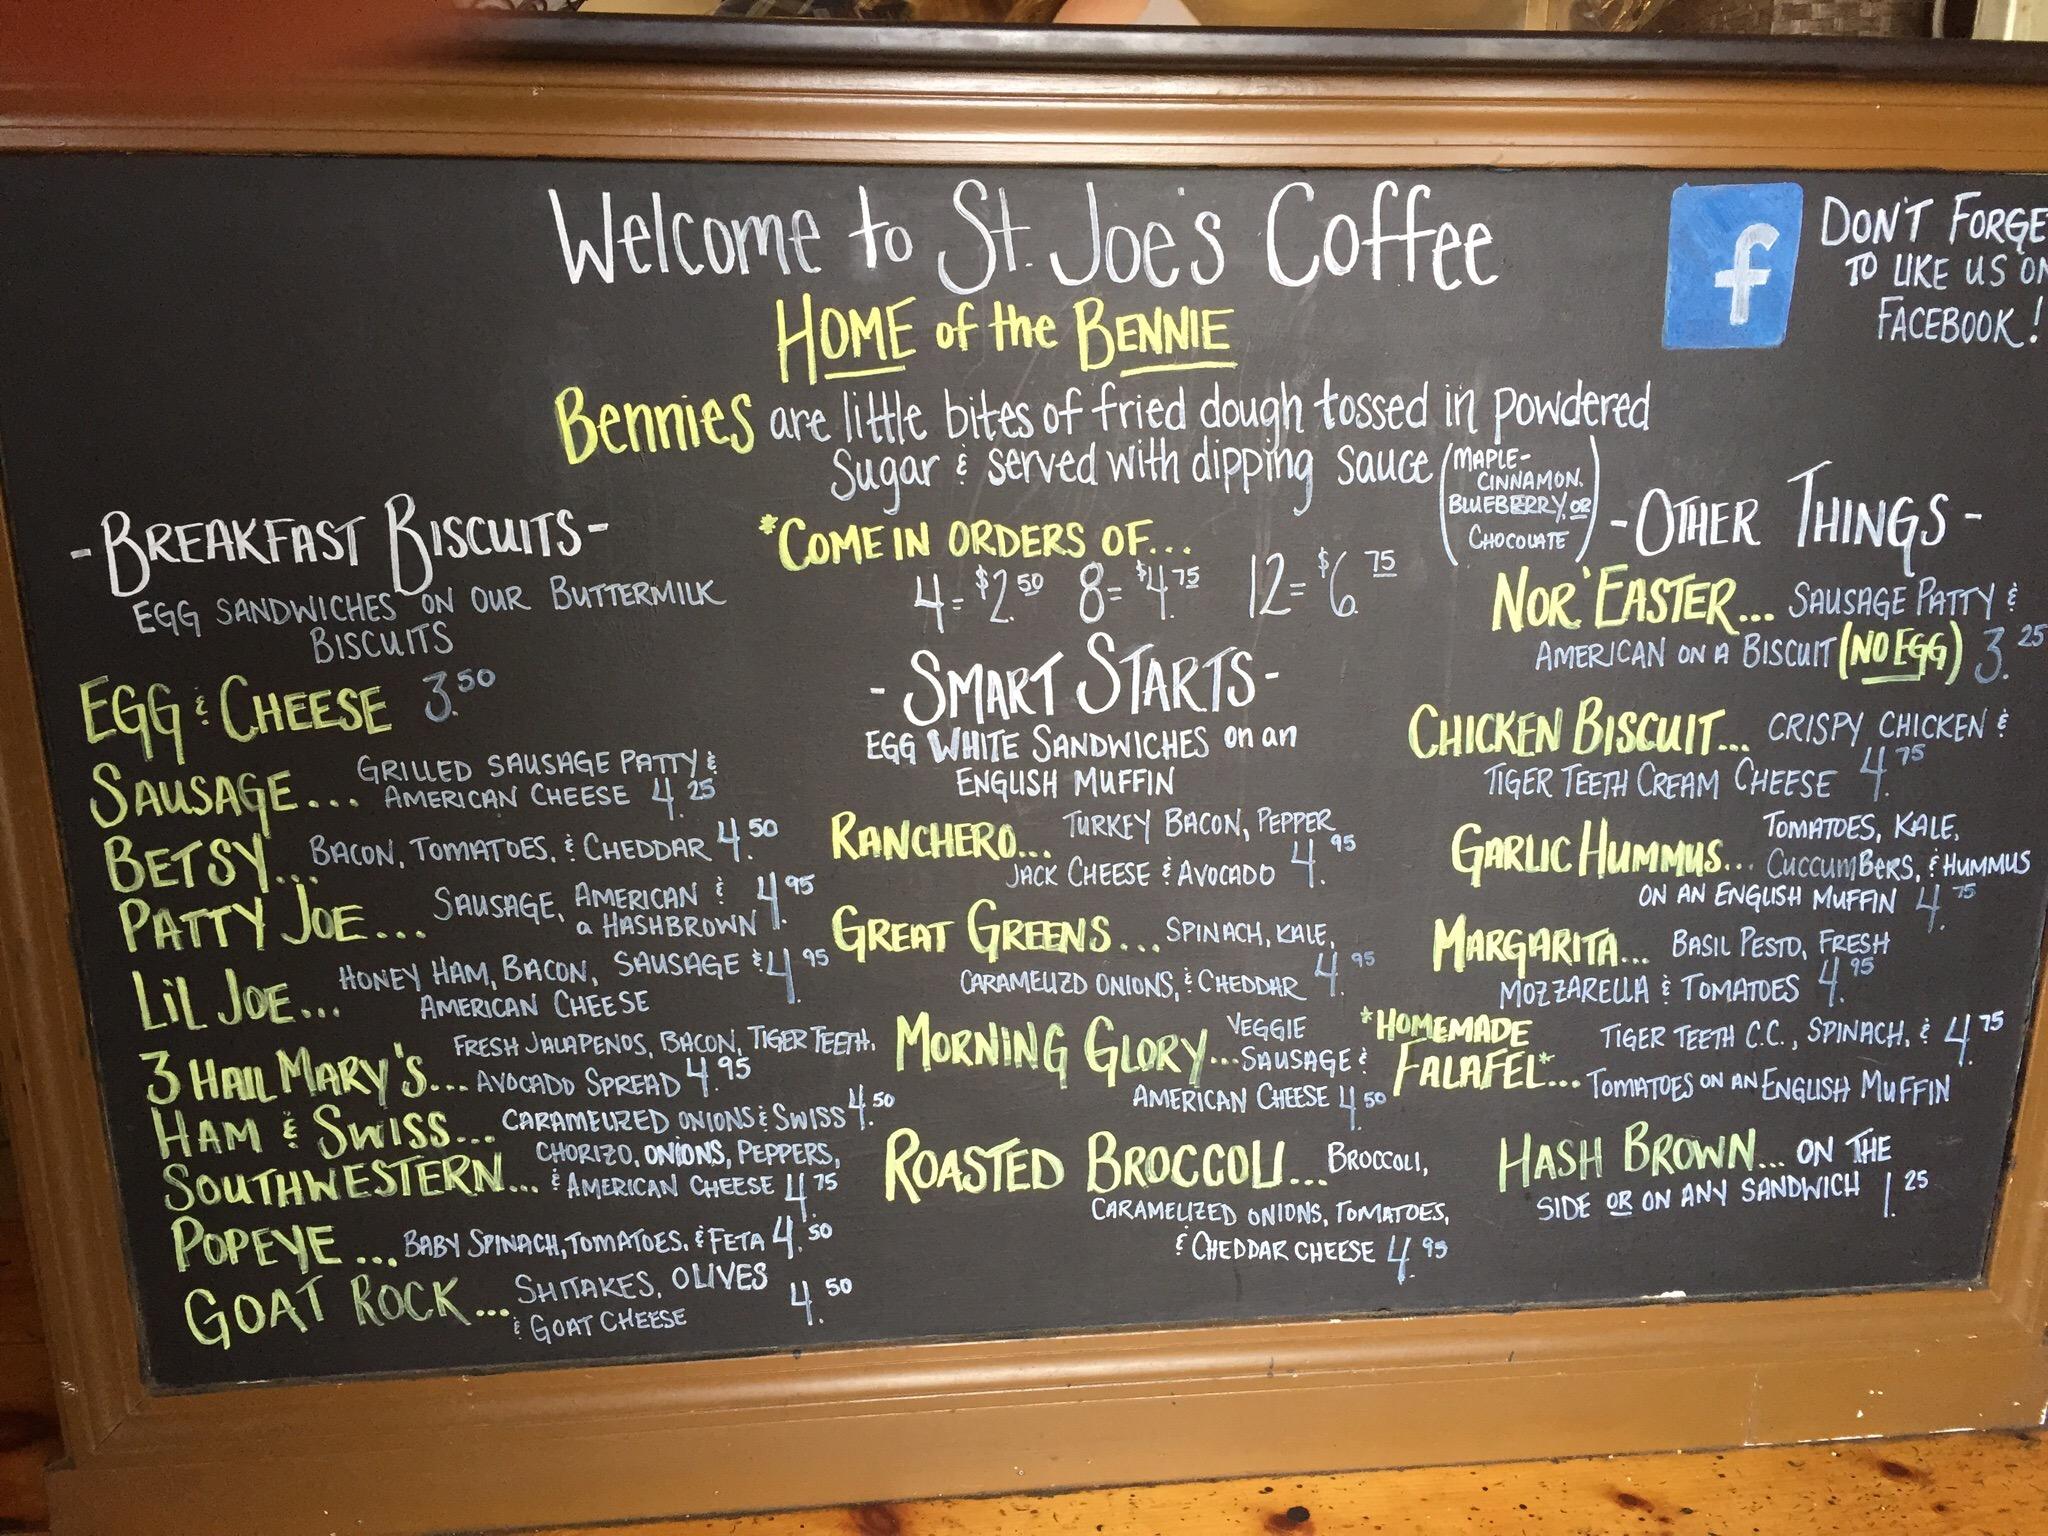 Welcome to St. Joe's Coffee
HOME of the BENNIE
Bennies are little bites of fried dough tossed in powdered
Sugar & served with dipping sauce (MAPLE-
CINNAMON,
BLUEBERRY, OR
CHOCOLATE)
*COME IN ORDERS OF...
4 = $2.50 8 = $4.75 12 = $6.75
f
DON'T FORGE
TO LIKE US ON
FACEBOOK!
- BREAKFAST BISCUITS -
EGG SANDWICHES ON OUR BUTTERMILK
BISCUITS
EGG & CHEESE 3.50
SAUSAGE... GRILLED SAUSAGE PATTY &
AMERICAN CHEESE 4.25
BETSY... BACON, TOMATOES, & CHEDDAR 4.50
PATTY JOE... SAUSAGE, AMERICAN &
a HASHBROWN 4.95
LIL JOE... HONEY HAM, BACON, SAUSAGE & 4.95
AMERICAN CHEESE
3 HAIL MARY'S... FRESH JALAPENOS, BACON, TIGER TEETH,
AVOCADO SPREAD 4.95
HAM & SWISS... CARAMELIZED ONIONS & SWISS 4.50
SOUTHWESTERN... CHORIZO, ONIONS, PEPPERS,
& AMERICAN CHEESE 4.75
POPEYE... BABY SPINACH, TOMATOES, & FETA 4.50
GOAT ROCK... SHITAKES, OLIVES
& GOAT CHEESE 4.50
- SMART STARTS -
EGG WHITE SANDWICHES on an
ENGLISH MUFFIN
RANCHERO... TURKEY BACON, PEPPER
JACK CHEESE & AVOCADO 4.95
GREAT GREENS... SPINACH, KALE,
CARAMELIZD ONIONS, & CHEDDAR 4.95
MORNING GLORY... VEGGIE
SAUSAGE &
AMERICAN CHEESE 4.50
ROASTED BROCCOLI... BROCCOLI,
CARAMELIZED ONIONS, TOMATOES,
& CHEDDAR CHEESE 4.95
- OTHER THINGS -
NOR'EASTER... SAUSAGE PATTY &
AMERICAN ON A BISCUIT (NO EGG) 3.25
CHICKEN BISCUIT... CRISPY CHICKEN &
TIGER TEETH CREAM CHEESE 4.75
GARLIC HUMMUS... TOMATOES, KALE,
CUCCUMBERS, & HUMMUS
ON AN ENGLISH MUFFIN 4.75
MARGARITA... BASIL PESTO, FRESH
MOZZARELLA & TOMATOES 4.95
*HOMEMADE
FALAFEL*... TIGER TEETH C.C., SPINACH, & 4.75
TOMATOES ON AN ENGLISH MUFFIN
HASH BROWN... ON THE
SIDE OR ON ANY SANDWICH 1.25